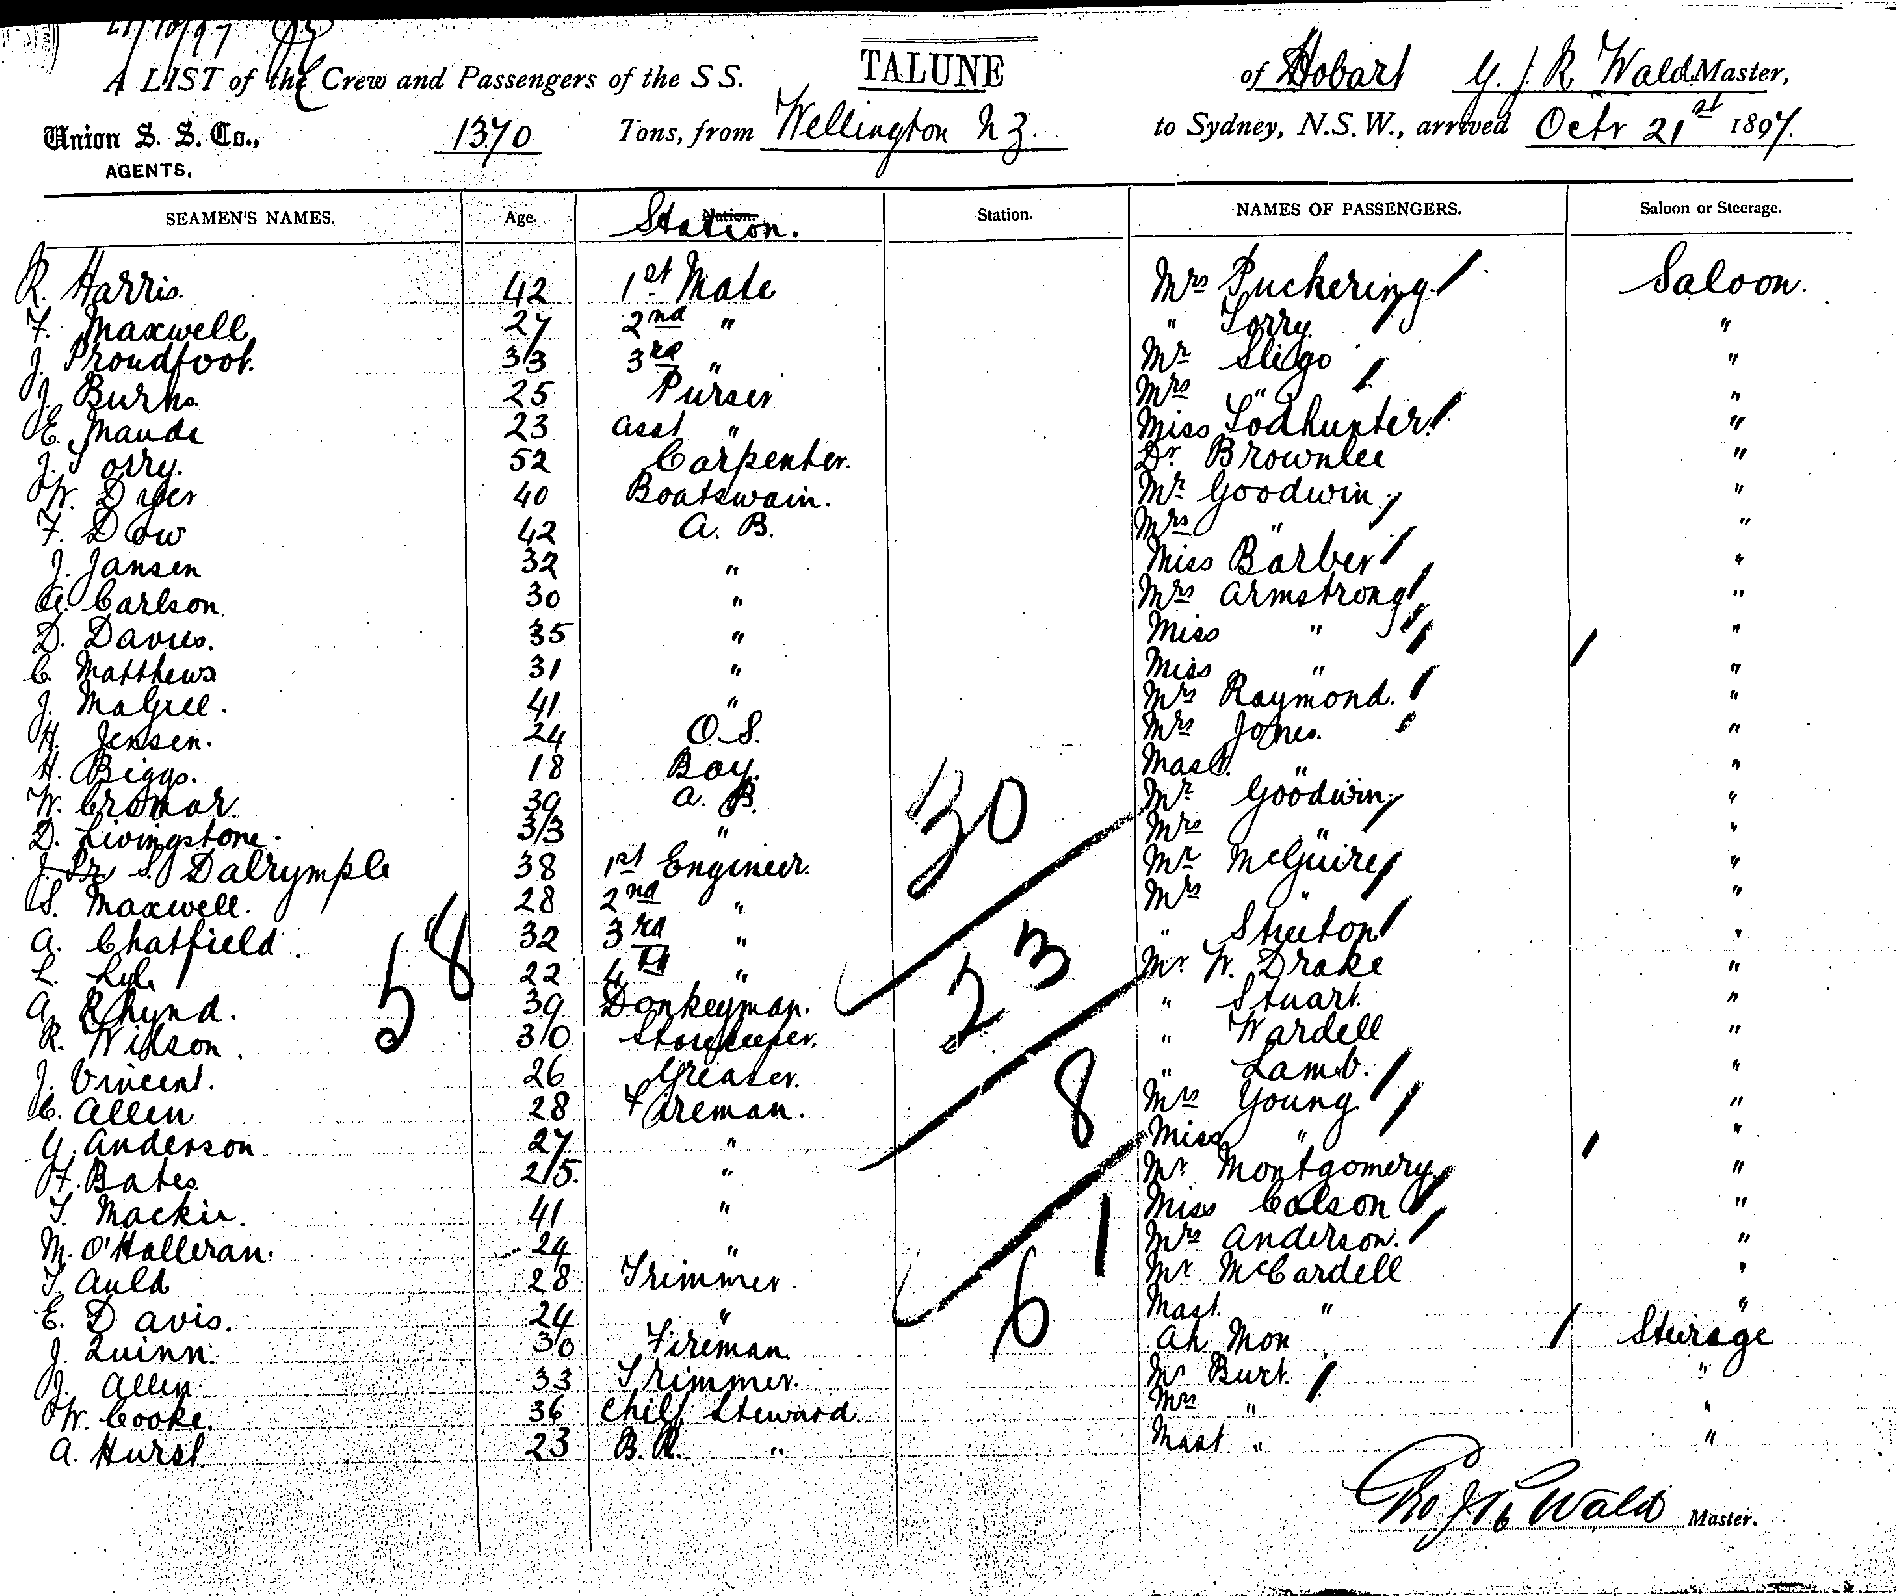 21/10/97
A LIST of the Crew and Passengers of the S S. TALUNE of Hobart G. J. R. Wald Master,
Union S. S. Co., AGENTS. 1370 Tons, from Wellington N Z. to Sydney, N.S.W., arrived Octr 21st 1897.
SEAMEN'S NAMES. Age. Nation. Station. Station. NAMES OF PASSENGERS. Saloon or Steerage.
R. Harris. 42 1st Mate Mrs Puckering Saloon.
F. Maxwell 27 2nd " " Torry "
J. Proudfoot. 33 3rd " Mr Sligo "
J. Burns 25 Purser Mrs " "
E. Maude 23 Asst " Miss Todhunter "
J. Torry. 52 Carpenter. Dr Brownlee "
W. Dyer 40 Boatswain. Mr Goodwin "
F. Dow 42 A. B. Mrs " "
J. Jansen 32 " Miss Barber "
A. Carlson. 30 " Mrs Armstrong "
D. Davies. 35 " Miss " "
C. Matthews 31 " Miss " "
J. McGill. 41 " Mrs Raymond. "
H. Jensen. 24 O. S. Mrs Jones. "
H. Biggs. 18 Boy. Mast. " "
W. Cromar. 39 A. B. 30 Mr Goodwin "
D. Livingstone. 33 " Mrs " "
J. S. Dalrymple 38 1st Engineer. Mr McGuire "
S. Maxwell. 28 2nd " Mrs " "
A. Chatfield. 58 32 3rd " 23 " Streeton "
L. Lyle 22 4th " Mr W. Drake "
A. Rhynd. 39 Donkeyman. " Stuart "
R. Wilson. 30 Storekeeper. " Wardell "
J. Vincent. 26 Greaser. " Lamb. "
C. Allen 28 Fireman. 8 Mrs Young "
G. Anderson 27 " Miss " "
H. Bates 25. " Mr Montgomery "
T. Mackie. 41 " Miss Colson "
M. O'Halleran. 24 " 1 Mrs Anderson. "
T. Auld 28 Trimmer. Mr McCardell "
E. Davis. 24 " 6 Mast. " "
J. Quinn. 30 Fireman Ah Mon Steerage
J. Allen 33 Trimmer. Mr Burt. "
W. Cooke. 36 Chief Steward Mrs " "
A. Hurst 23 B. R. " Mast " "
Geo J R Wald Master.